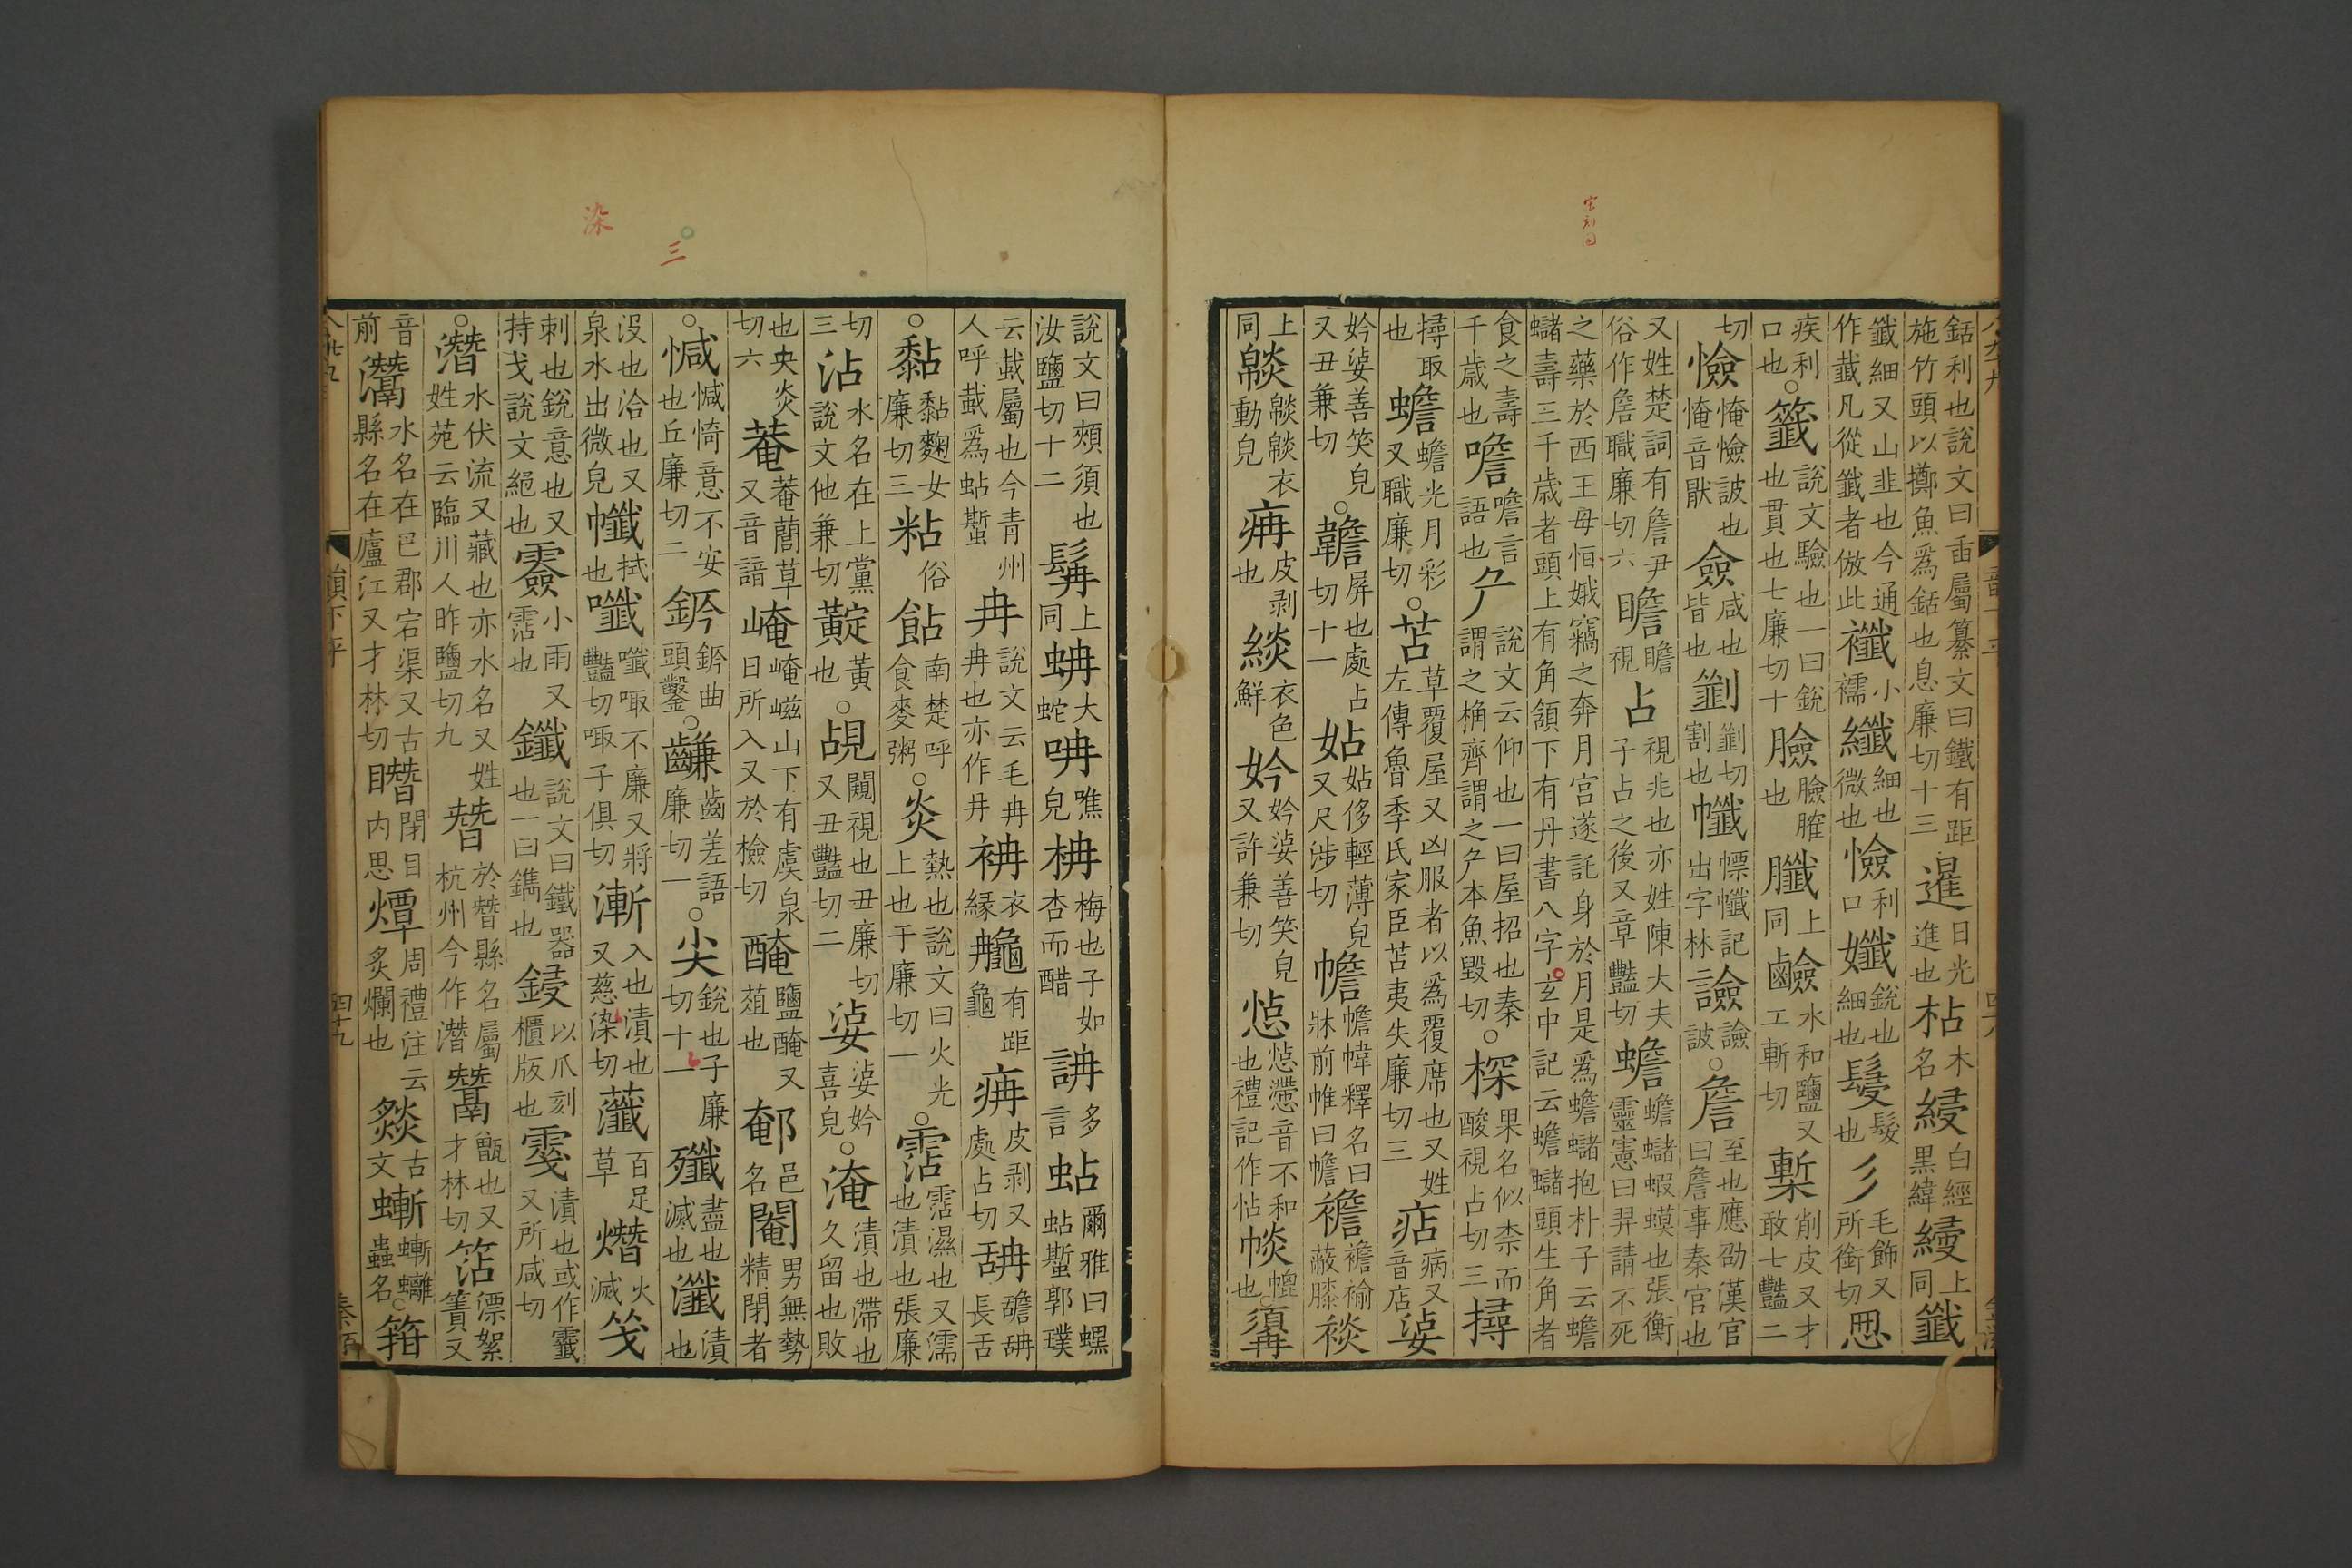 銛利也說文曰臿屬纂文曰鐵有距施竹頭以擲魚爲銛也息廉切十三暹日光進也枮木名綅白經黑緯縵上同韱
韱細又山韭也今通作韯凡從韱者倣此襳小襦纖細也微也憸利口孅銳也細也鬘髮也彡毛飾又所銜切思
疾利口也○籤說文驗也一曰銳也貫也七廉切十臉臉䐛也䐮上同鹼水和鹽又工斬切槧削皮又才敢七豔二
切憸憸詖也㤿音猒僉咸也皆也㔍㔍切割也幟幖㡨記出字林譣譣詖○詹至也應劭漢官曰詹事秦官也
又姓楚詞有詹尹俗作詹職廉切六瞻瞻視占視兆也亦姓陳大夫子占之後又章豔切蟾蟾蠩蝦蟆也張衡靈憲曰羿請不死
之藥於西王母恒娥竊之奔月宮遂託身於月是爲蟾蠩抱朴子云蟾蠩壽三千歲者頭上有角頷下有丹書八字玄中記云蟾蠩頭生角者
食之壽千歲也噡噡言語也厃說文云仰也一曰屋招也秦謂之桷齊謂之厃本魚毀切○棎果名似柰而酸視占切三撏
撏取也蟾蟾光月彩又職廉切○苫草覆屋又凶服者以爲覆席也又姓左傳魯季氏家臣苫夷失廉切三痁病又音店姿
妗㛪善笑皃又丑兼切○襜屏也處占切十一姑姑侈輕薄皃又尺涉切幨幨幃釋名曰牀前帷曰幨襜襜褕蔽膝裧
上同緂緂緂衣動皃痈皮剥也緂衣色鮮妗妗㛪善笑皃又許兼切惉惉懘音不和也禮記作怗㡘㡓也○䫇
說文曰頰須也汝鹽切十二髯上同蚺大蛇呥噍皃枏梅也子如杏而醋詽多言蛅爾雅曰螺蛅蟴郭璞
云蛓屬也今青州人呼蛓爲蛅蟴冉說文云毛冉冉也亦作冄袡衣緣䶲龜有距痈皮剥又處占切舑䑙舑長舌
○黏黏麴女廉切三粘俗䬯南楚呼食麥粥○炎熱也說文曰火光上也于廉切一○霑霑濕也又濡也漬也張廉
切三沾水名在上黨說文他兼切黇黃也○覘闚視也丑廉切又丑豔切二㛪㛪妗喜皃○淹漬也滯也久留也敗
也央炎切六菴菴䕡草又音諳崦崦嵫山下有虞泉日所入又於檢切醃鹽醃又葅也䣍邑名閹男無勢精閉者
○㦑㦑㤉意不安也丘廉切二鈐鈐曲頭鑿○鹻齒差語廉切一○尖銳也子廉切十一殲盡也滅也瀸漬也
沒也洽也又泉水出微皃㡨拭也嚵嚵㖩不廉又將豔切㖩子俱切漸入也漬也又慈染切虃百足草熸火滅㦮
刺也銳意也又持戈說文絕也霎小雨又霑也鑯說文曰鐵器也一曰鐫也鋟以爪刻櫃版也䨛漬也或作霎又所咸切
○潛水伏流又藏也亦水名又姓姓苑云臨川人昨鹽切九朁於朁縣名屬杭州今作潛鬵甑也又才林切䈴漂絮簀又
音前灊水名在巴郡宕渠又古縣名在廬江又才林切䁮閉目內思燂周禮注云炙爛也燅古文螹螹蠩蟲名○箝
染
三